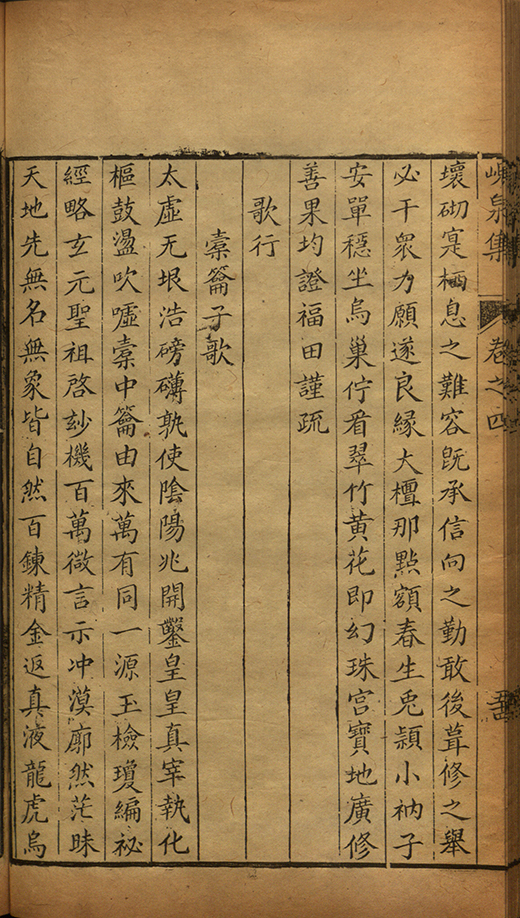 峴泉集 卷之四
壞砌寔栖息之難容旣承信向之勤敢後葺修之舉
必干衆力願遂良緣大檀那㸃額春生兎頴小衲子
安單穩坐烏巢佇看翠竹黄花即幻珠宫寳地廣修
善果均證福田謹疏
歌行
橐籥子歌
太虛无垠浩磅礴孰使陰陽兆開鑿皇皇真宰執化
樞鼓盪吹噓橐中籥由來萬有同一源玉檢瓊編祕
經略玄元聖祖啓玅機百萬微言示冲漠廓然茫昧
天地先無名無象皆自然百鍊精金返真液龍虎烏